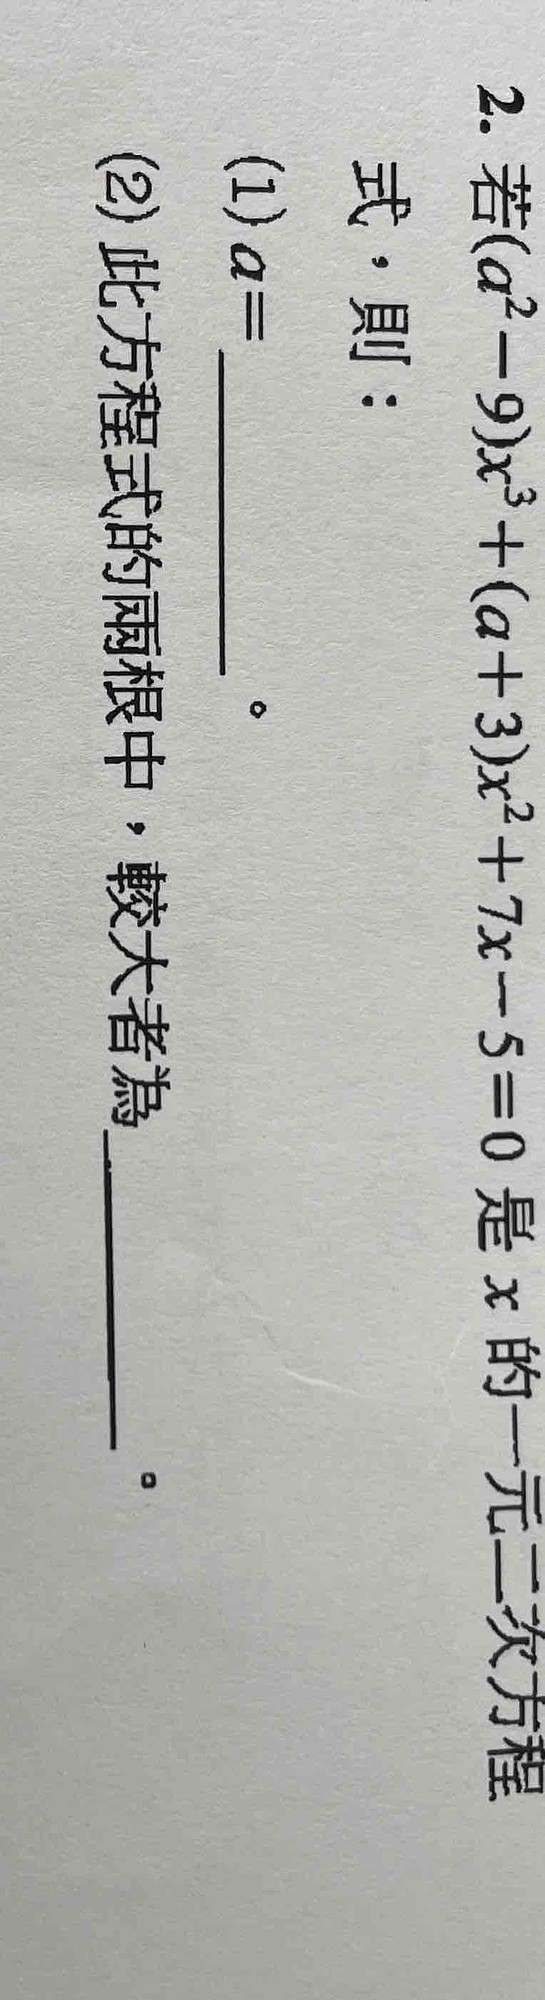 2. 若(a²－9)x³＋(a＋3)x²＋7x－5＝0 是 x 的一元二次方程
式，則：
(1) a＝＿＿＿＿＿。
(2) 此方程式的兩根中，較大者為＿＿＿＿＿。